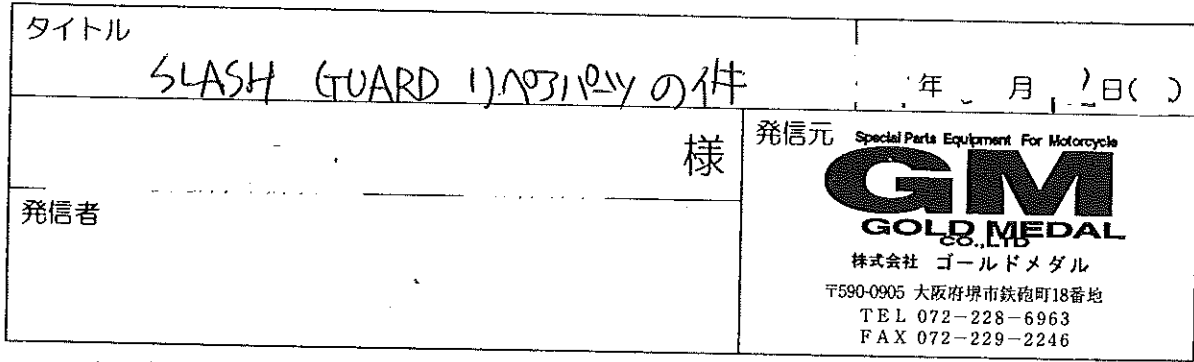 タイトル
SLASH GUARD リペアパーツの件
年 月 日( )
様
発信元
Special Parts Equipment For Motorcycle
GM
GOLD MEDAL
CO.,LTD
株式会社 ゴールドメダル
〒590-0905 大阪府堺市鉄砲町18番地
TEL 072-228-6963
FAX 072-229-2246
発信者